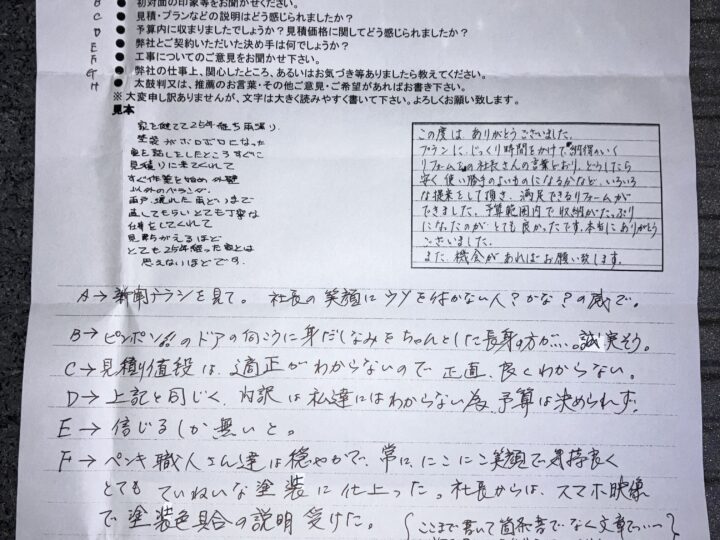 B ● 初対面の印象等をお聞かせください。
C ● 見積・プランなどの説明はどう感じられましたか？
D ● 予算内に収まりましたでしょうか？見積価格に関してどう感じられましたか？
E ● 弊社とご契約いただいた決め手は何でしょうか？
F ● 工事についてのご意見をお聞かせ下さい。
G ● 弊社の仕事上、関心したところ、あるいはお気づき等ありましたら教えてください。
H ● 太鼓判又は、推薦のお言葉・その他ご意見・ご希望があればお書き下さい。
※ 大変申し訳ありませんが、文字は大きく読みやすく書いて下さい。よろしくお願い致します。
見本
家を建てて25年経ち雨漏り、
塗装がボロボロになった
事を話しをしたところすぐに
見積りに来てくれて
すぐ作業を始め外壁
以外のベランダ、
雨戸、壊れた雨どいまで
直してもらいとても丁寧な
仕事をしてくれて
見ちがえるほど
とても25年経った家とは
思えないほどです。
この度は、ありがとうございました。
プランに、じっくり時間をかけて"納得のいく
リフォームを"の社長さんの言葉どおり、どうしたら
安く使い勝手のよいものになるかなど、いろいろ
な提案をして頂き、満足できるリフォームが
できました。予算範囲内で収納がたっぷり
になったのが、とても良かったです。本当にありがとう
ございました。
また、機会があればお願い致します。
A→ 新聞チラシを見て。 社長の笑顔にウソを付かない人？かな？の感で。
B→ ピンポン!!のドアの向こうに身だしなみをちゃんとした長身の方が…。誠実そう。
C→ 見積り値段は、適正がわからないので正直、良くわからない。
D→ 上記と同じく、内訳は私達にはわからない為、予算は決められず。
E→ 信じるしか無いと。
F→ ペンキ職人さん達は穏やかで、常に、にこにこ笑顔で気持良く
とても ていねいな塗装に仕上った。社長からは、スマホ映像
で塗装色具合の説明 受けた。 (ここまで書いて箇条書でなく文章で……?)